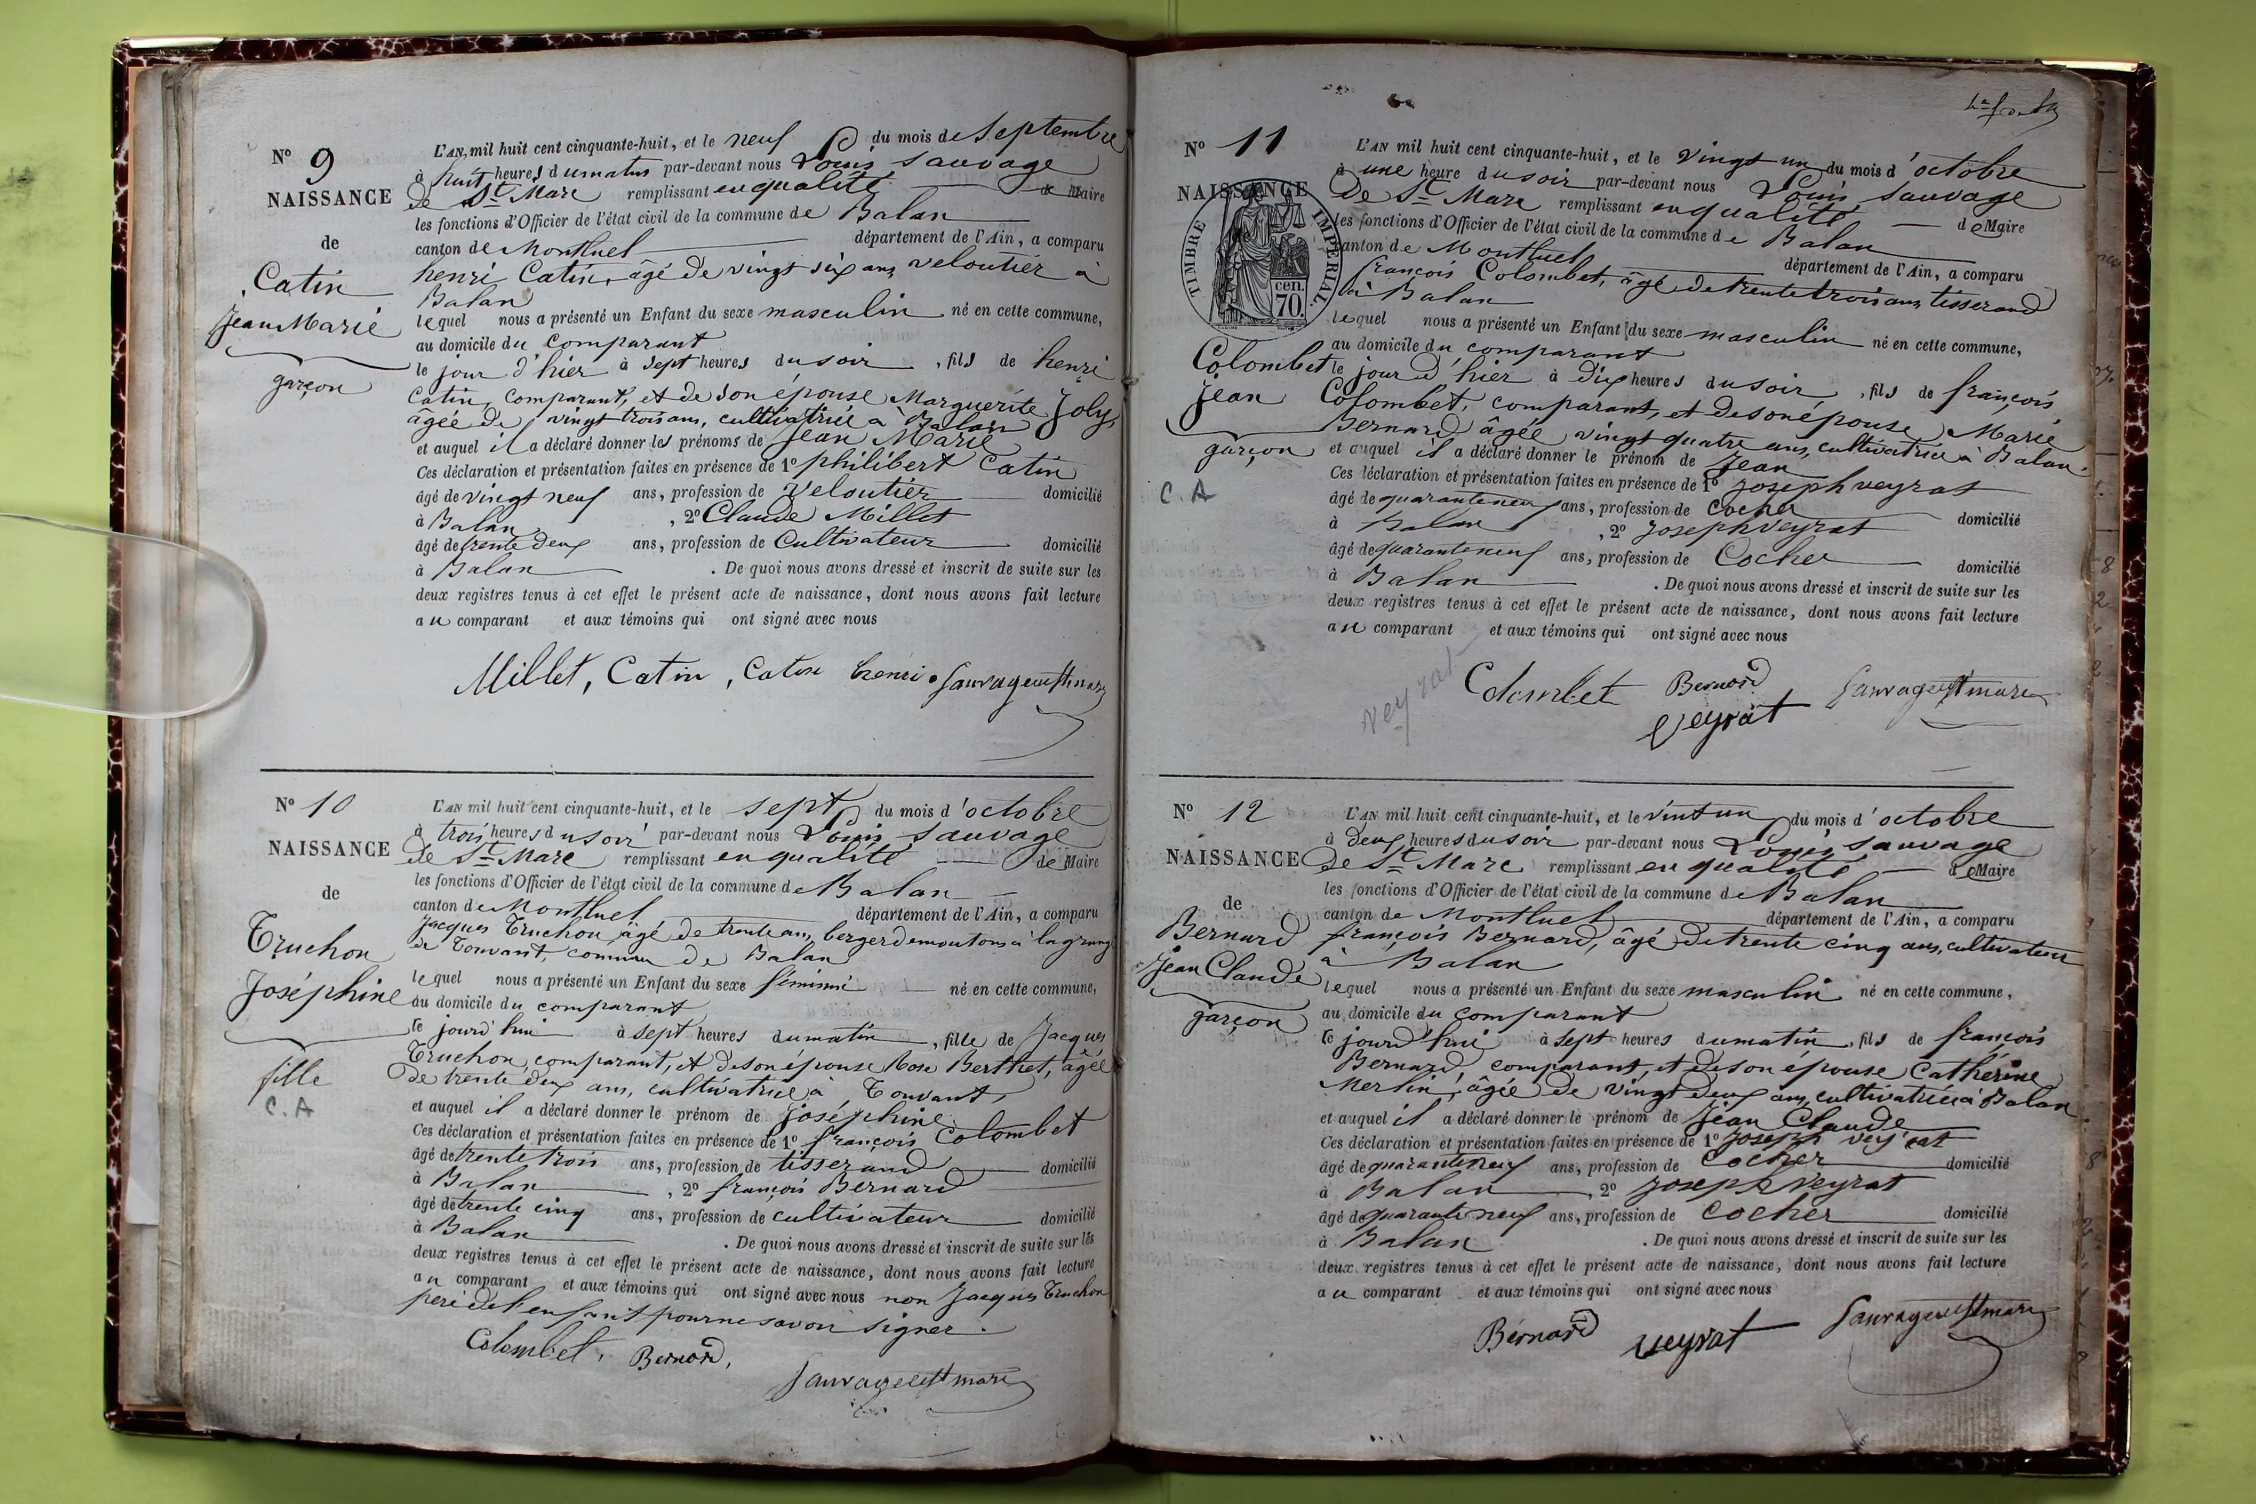 N° 9
NAISSANCE
de
Catin
Jean Marie
garçon
L'AN mil huit cent cinquante-huit, et le neuf du mois de septembre
à huit heures du matin par-devant nous Louis sauvage
de St Marc remplissant en qualité de Maire
les fonctions d'Officier de l'état civil de la commune de Balan
canton de Montluel département de l'Ain, a comparu
henri Catin, âgé de vingt six ans veloutier à
Balan
lequel nous a présenté un Enfant du sexe masculin né en cette commune,
au domicile du comparant
le jour d'hier à sept heures du soir, fils de henri
Catin, comparant, et de son épouse Marguerite Joly,
âgée de vingt trois ans, cultivatrice à Balan
et auquel il a déclaré donner les prénoms de Jean Marie
Ces déclaration et présentation faites en présence de 1° philibert Catin
âgé de vingt neuf ans, profession de Veloutier domicilié
à Balan, 2° Claude Millet
âgé de trente deux ans, profession de Cultivateur domicilié
à Balan. De quoi nous avons dressé et inscrit de suite sur les
deux registres tenus à cet effet le présent acte de naissance, dont nous avons fait lecture
au comparant et aux témoins qui ont signé avec nous
Millet, Catin, Catin henri. Sauvage de St marc
N° 10
NAISSANCE
de
Truchon
Joséphine
fille
C. A
L'AN mil huit cent cinquante-huit, et le sept du mois d'octobre
à trois heures du soir par-devant nous Louis sauvage
de St Marc remplissant en qualité de Maire
les fonctions d'Officier de l'état civil de la commune de Balan
canton de Montluel département de l'Ain, a comparu
Jacques Truchon, âgé de trente ans, berger de moutons à la grange
de Touvant, commune de Balan
lequel nous a présenté un Enfant du sexe féminin né en cette commune,
au domicile du comparant
le jourd'hui à sept heures du matin, fille de Jacques
Truchon, comparant, et de son épouse Rose Berthet, âgée
de trente deux ans, cultivatrice à Touvant,
et auquel il a déclaré donner le prénom de joséphine
Ces déclaration et présentation faites en présence de 1° françois Colombet
âgé de trente trois ans, profession de tisserand domicilié
à Balan, 2° françois Bernard
âgé de trente cinq ans, profession de cultivateur domicilié
à Balan. De quoi nous avons dressé et inscrit de suite sur les
deux registres tenus à cet effet le présent acte de naissance, dont nous avons fait lecture
au comparant et aux témoins qui ont signé avec nous non Jacques Truchon
père de l'enfant pour ne savoir signer.
Colombet, Bernard,
Sauvage de St marc
N° 11
NAISSANCE
TIMBRE IMPERIAL.
70 cen.
Colombet
Jean
garçon
C. A
L'AN mil huit cent cinquante-huit, et le vingt un du mois d'octobre
à une heure du soir par-devant nous Louis sauvage
de St Marc remplissant en qualité de Maire
les fonctions d'Officier de l'état civil de la commune de Balan
canton de Montluel département de l'Ain, a comparu
françois Colombet, âgé de trente trois ans, tisserand
à Balan
lequel nous a présenté un Enfant du sexe masculin né en cette commune,
au domicile du comparant
le jour d'hier à dix heures du soir, fils de françois
Colombet, comparant, et de son épouse Marie
Bernard âgée vingt quatre ans, cultivatrice à Balan.
et auquel il a déclaré donner le prénom de Jean
Ces déclaration et présentation faites en présence de 1° Joseph veyrat
âgé de quarante neuf ans, profession de Cocher domicilié
à Balan, 2° Joseph Veyrat
âgé de quarante neuf ans, profession de Cocher domicilié
à Balan. De quoi nous avons dressé et inscrit de suite sur les
deux registres tenus à cet effet le présent acte de naissance, dont nous avons fait lecture
au comparant et aux témoins qui ont signé avec nous
Veyrat
Colombet Bernard Sauvage de St marc
veyrat
N° 12
NAISSANCE
de
Bernard
Jean Claude
garçon
L'AN mil huit cent cinquante-huit, et le vint un du mois d'octobre
à deux heures du soir par-devant nous Louis sauvage
de St Marc remplissant en qualité de Maire
les fonctions d'Officier de l'état civil de la commune de Balan
canton de Montluel département de l'Ain, a comparu
françois Bernard, âgé de trente cinq ans, cultivateur
à Balan
lequel nous a présenté un Enfant du sexe masculin né en cette commune,
au domicile du comparant
le jourd'hui à sept heures du matin, fils de françois
Bernard, comparant, et de son épouse Catherine
Merlin, âgée de vingt deux ans, cultivatrice à Balan
et auquel il a déclaré donner le prénom de Jean Claude
Ces déclaration et présentation faites en présence de 1° Joseph veyrat
âgé de quarante neuf ans, profession de Cocher domicilié
à Balan, 2° Joseph Veyrat
âgé de quarante neuf ans, profession de Cocher domicilié
à Balan. De quoi nous avons dressé et inscrit de suite sur les
deux registres tenus à cet effet le présent acte de naissance, dont nous avons fait lecture
au comparant et aux témoins qui ont signé avec nous
Bernard veyrat Sauvage de St marc